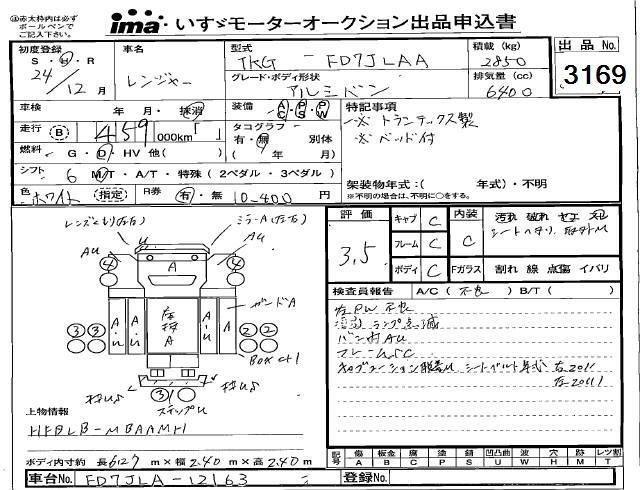 ①太枠内は必ず
ボールペンで
ご記入下さい。
ima いすゞモーターオークション出品申込書
初度登録 車名 型式 TKG - FD7JLAA 積載(kg) 2850 出品No.
S・H・R 24/12月 レンジャー グレード・ボディ形状 アルミバン 排気量(cc) 6400 3169
車検 年 月・抹消 装備 AC PS PW 特記事項
走行 B 459 000km「 」 タコグラフ 有・無 別体 ( 年 月) ※トランテックス製
※ベッド付
燃料 G・D・HV 他( )
シフト 6 M/T・A/T・特殊(2ペダル・3ペダル)
架装物年式:( 年式)・不明
※不明の場合は、不明に○をする。
色 ホワイト (指定) R券 有・無 10-400円
評価 3.5 キャブ C 内装 C
フレーム C
ボディ C Fガラス 割れ 線 点傷 イバリ
汚れ 破れ
検査員報告 A/C( 不良 ) B/T( )
左PW不良
ランプ点滅
バン内AU
フレームSC
シートベルト年式 右2011
左2011
レンズくもり(左右) ミラーA(左右)
AU U AU
4 A 4
ガードA
3 3 A・U A・U 床板A A・U A・U 2 2
BOXサビ
3
ステップU
上物情報
HFBLB-MBAAMH
ボディ内寸約 長6.27m×幅2.40m×高2.40m
記号 傷 A 板金 B 腐 C 塗 P 錆 S 凹凸曲 U 波 W 穴 H 跡 M レツ割 T
車台No. FD7JLA-12163 登録No.